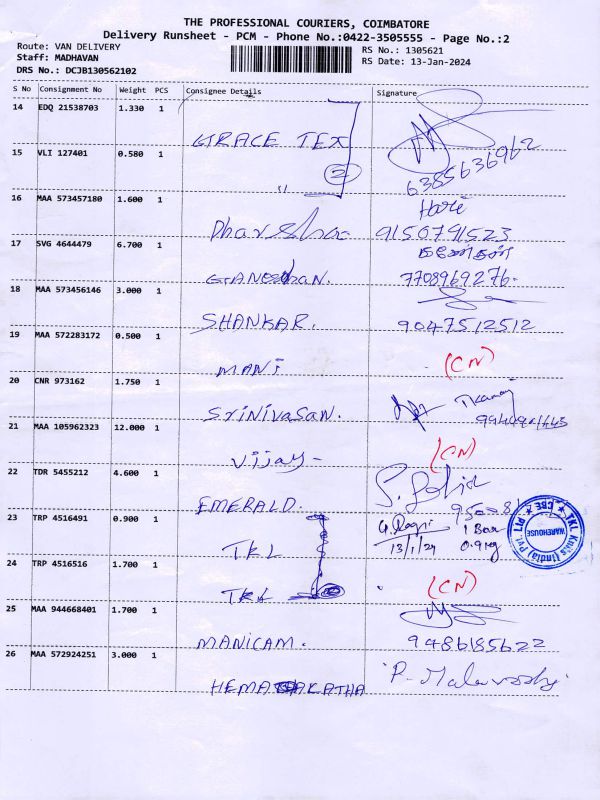 THE PROFESSIONAL COURIERS, COIMBATORE
Delivery Runsheet - PCM - Phone No.:0422-3505555 - Page No.:2
Route: VAN DELIVERY
Staff: MADHAVAN
DRS No.: DCJB130562102
RS No.: 1305621
RS Date: 13-Jan-2024
S No Consignment No Weight PCS Consignee Details Signature
14 EDQ 21538703 1.330 1
GRACE TEX
6385636962
15 VLI 127401 0.580 1
2
"
Hari
16 MAA 573457180 1.600 1
9150791523
17 SVG 4644479 6.700 1
கணேசன்
GANESHAN. 7708969276.
18 MAA 573456146 3.000 1
SHANKAR. 9047512512
19 MAA 572283172 0.500 1
MANI (CN)
20 CNR 973162 1.750 1
Srinivasan.
21 MAA 105962323 12.000 1
Vijay- (CN)
22 TDR 5455212 4.600 1
EMERALD.
23 TRP 4516491 0.900 1
TKL
13/1/24
1 Box
0.9kg
WAREHOUSE
24 TRP 4516516 1.700 1
TKL (CN)
25 MAA 944668401 1.700 1
MANICAM. 9486185622
26 MAA 572924251 3.000 1